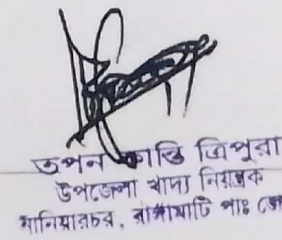 তপন কান্তি ত্রিপুরা
উপজেলা খাদ্য নিয়ন্ত্রক
নানিয়ারচর, রাঙ্গামাটি পাঃ জে